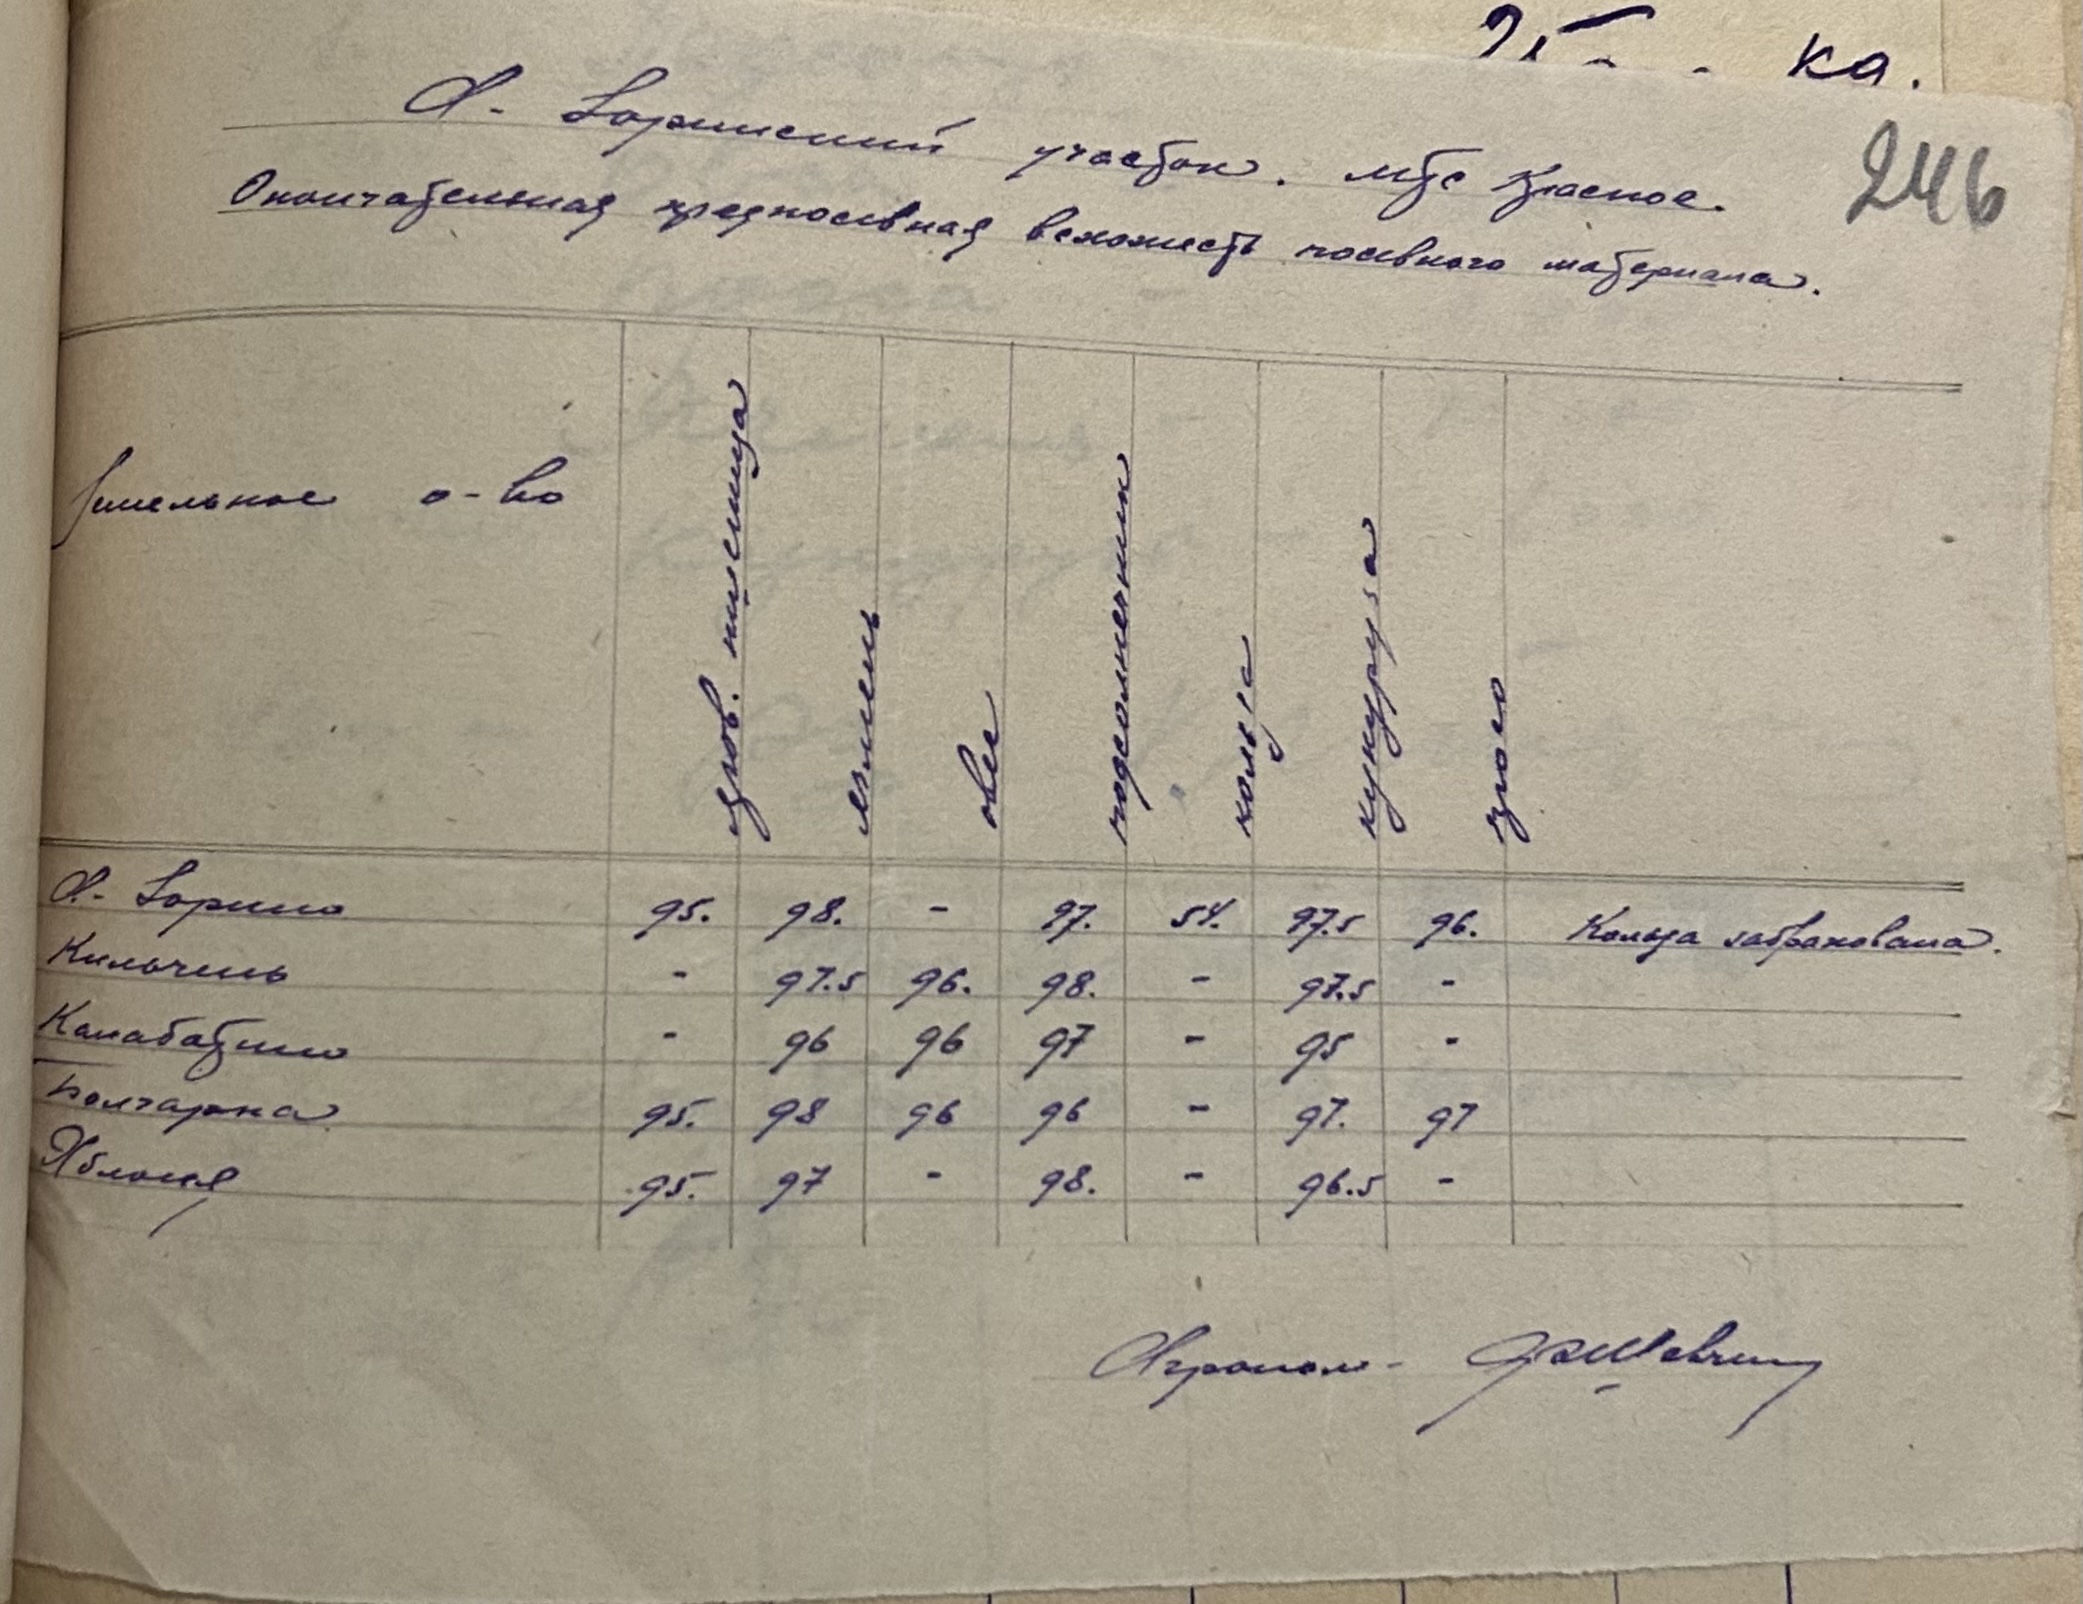 ка.
246
А.- Зоринский участок. МТС Красное.
Окончательная предпосевная всхожесть посевного материала.
Земельное о-во яров. пшеница ячмень овес подсолнечник кольза кукуруза просо
А.- Зорино 95. 98. - 97. 54. 97.5 96. Кользa забракована.
Кильчень - 97.5 96. 98. - 97.5 -
Калабатино - 96 96 97 - 95 -
Болгарка 95. 98 96 96 - 97. 97
Яблоня 95. 97 - 98. - 96.5 -
Агроном-